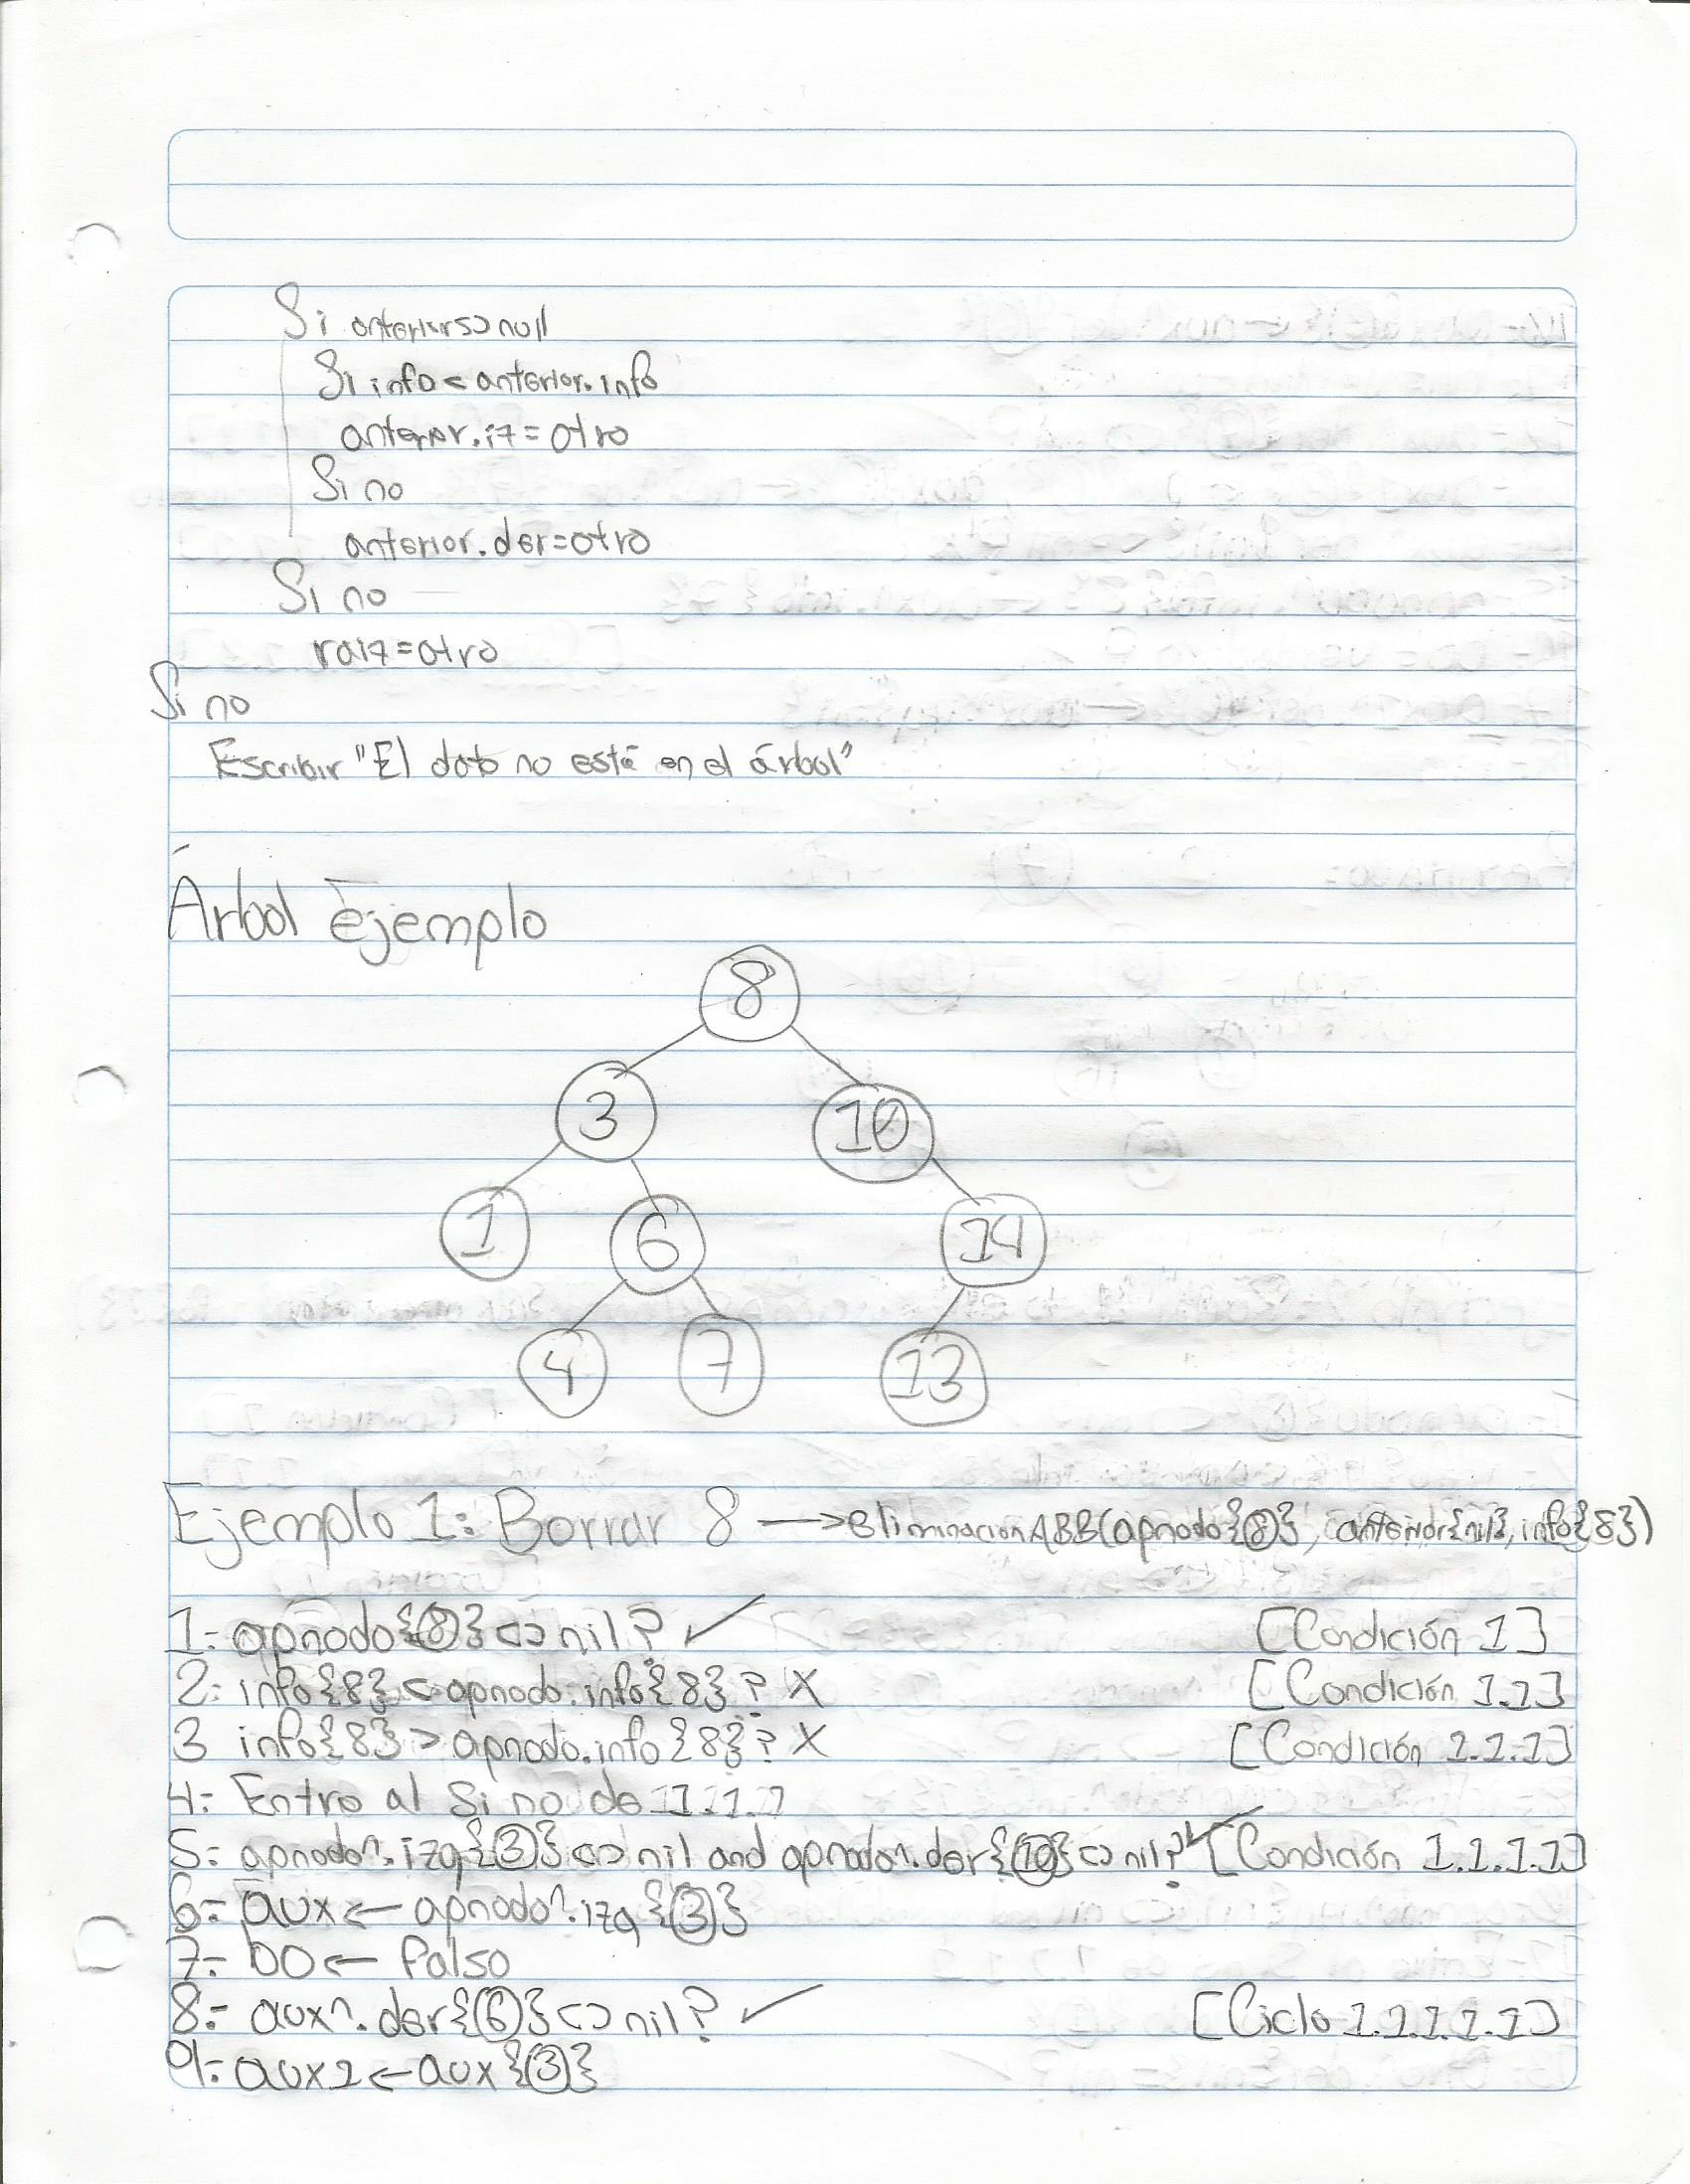 Si anterior<>null
Si info<anterior.info
anterior.iz=otro
Si no
anterior.der=otro
Si no
raiz=otro
Si no
Escribir "El dato no está en el árbol"
Árbol Ejemplo
8
3 10
1 6 14
4 7 13
Ejemplo 1: Borrar 8 —>eliminacionABB(apnodo{8}, anterior{nil}, info{8})
1- apnodo{8}<>nil? ✓ [Condición 1]
2- info{8}<apnodo.info{8}? X [Condición 1.1]
3 info{8}>apnodo.info{8}? X [Condición 1.1.1]
4- Entro al Si no de 1.1.1
5- apnodo^.izq{3}<>nil and apnodo^.der{10}<>nil? ✓ [Condición 1.1.1.1]
6- aux<—apnodo^.izq{3}
7- bo<— falso
8- aux^.der{6}<>nil? ✓ [Ciclo 1.1.1.1.1]
9- aux1<—aux{3}